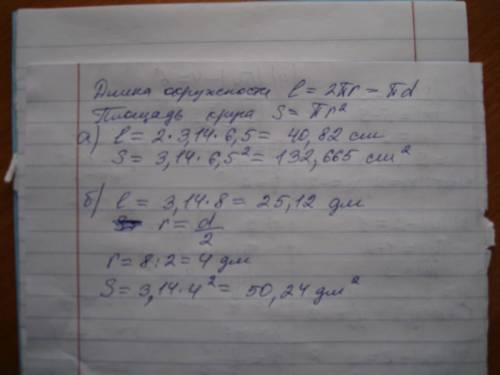 Длина окружности l = 2πr = πd
Площадь круга S = πr²
а) l = 2 · 3,14 · 6,5 = 40,82 см
S = 3,14 · 6,5² = 132,665 см²
б) l = 3,14 · 8 = 25,12 дм
r = d/2
r = 8 : 2 = 4 дм
S = 3,14 · 4² = 50,24 дм²